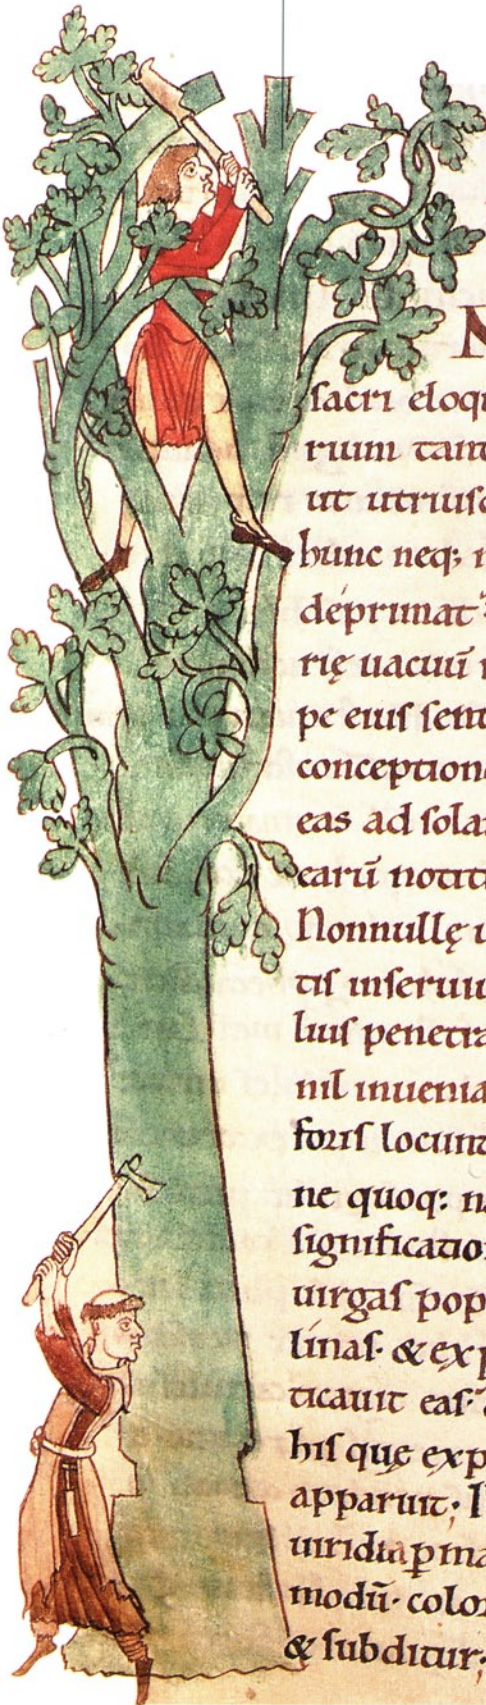 N
ſacri eloqu
rium tant
ut utriuſq
hunc neq;
deprimat
rię uacuū
pe eiuſ ſent
conception
eas ad ſola
earū notiti
Nonnullę u
tiſ inſeruiu
liuſ penetra
nil inuenia
foriſ locunt
ne quoq: na
ſignificatio
uirgaſ pop
linaſ· & exp
ticauit eaſ·
hiſ que exp
apparuit· I
uiridia ꝑ ma
modū· color
& ſubditur·